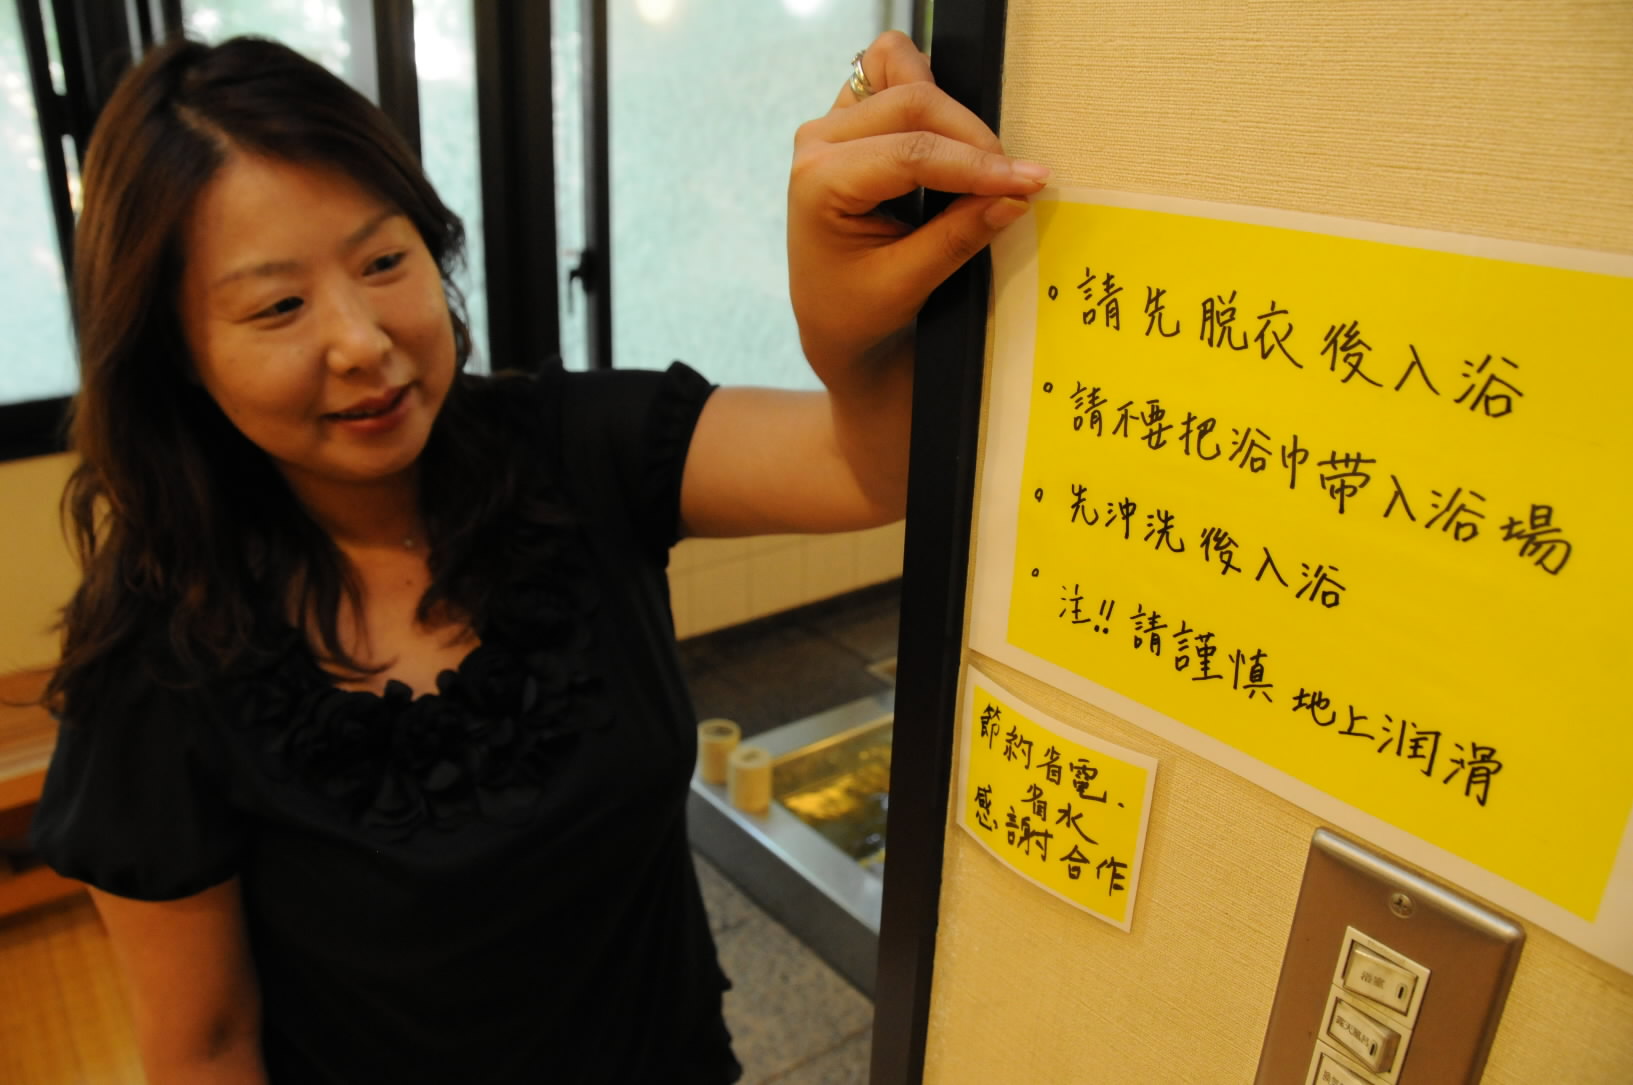 。請先脱衣後入浴
。請不要把浴巾帶入浴場
。先沖洗後入浴
。注!!請謹慎地上润滑
節約省電、
省水
感謝合作
浴室
露天風呂